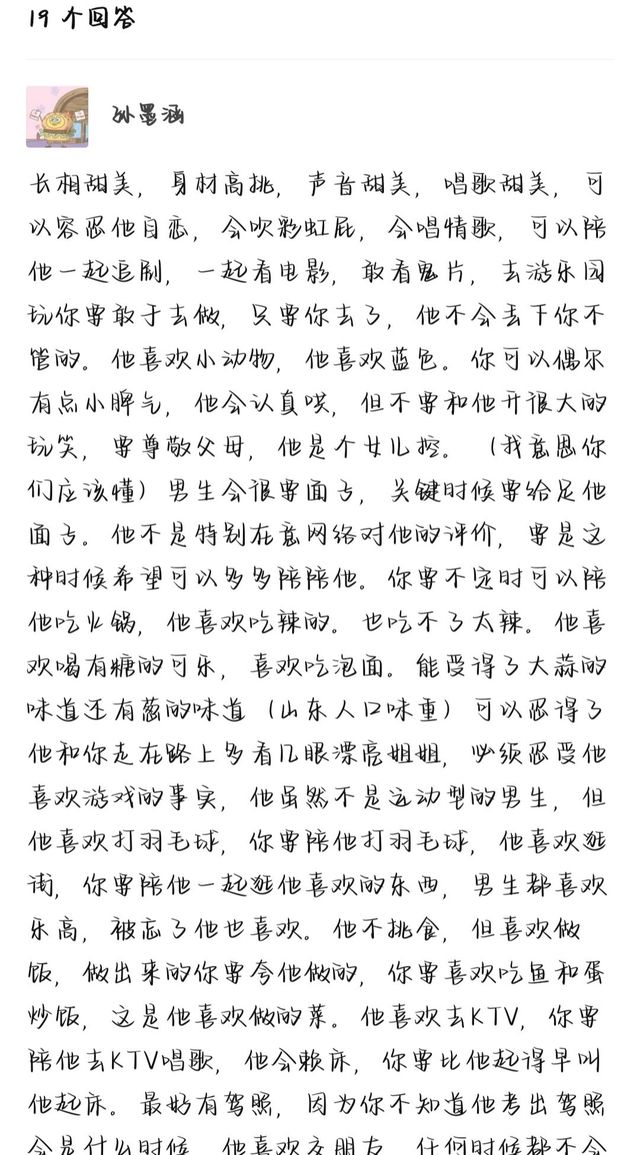 19 个回答
孙墨涵
长相甜美，身材高挑，声音甜美，唱歌甜美，可
以容忍他自恋，会吹彩虹屁，会唱情歌，可以陪
他一起追剧，一起看电影，敢看鬼片，去游乐园
玩你要敢于去做，只要你去了，他不会丢下你不
管的。他喜欢小动物，他喜欢蓝色。你可以偶尔
有点小脾气，他会认真哄，但不要和他开很大的
玩笑，要尊敬父母，他是个女儿控。（我意思你
们应该懂）男生会很要面子，关键时候要给足他
面子。他不是特别在意网络对他的评价，要是这
种时候希望可以多多陪陪他。你要不定时可以陪
他吃火锅，他喜欢吃辣的。也吃不了太辣。他喜
欢喝有糖的可乐，喜欢吃泡面。能受得了大蒜的
味道还有葱的味道（山东人口味重）可以忍得了
他和你走在路上多看几眼漂亮姐姐，必须忍受他
喜欢游戏的事实，他虽然不是运动型的男生，但
他喜欢打羽毛球，你要陪他打羽毛球，他喜欢逛
街，你要陪他一起逛他喜欢的东西，男生都喜欢
乐高，被忘了他也喜欢。他不挑食，但喜欢做
饭，做出来的你要夸他做的，你要喜欢吃鱼和蛋
炒饭，这是他喜欢做的菜。他喜欢去KTV，你要
陪他去KTV唱歌，他会赖床，你要比他起得早叫
他起床。最好有驾照，因为你不知道他考出驾照
会是什么时候，他喜欢交朋友，任何时候都不会